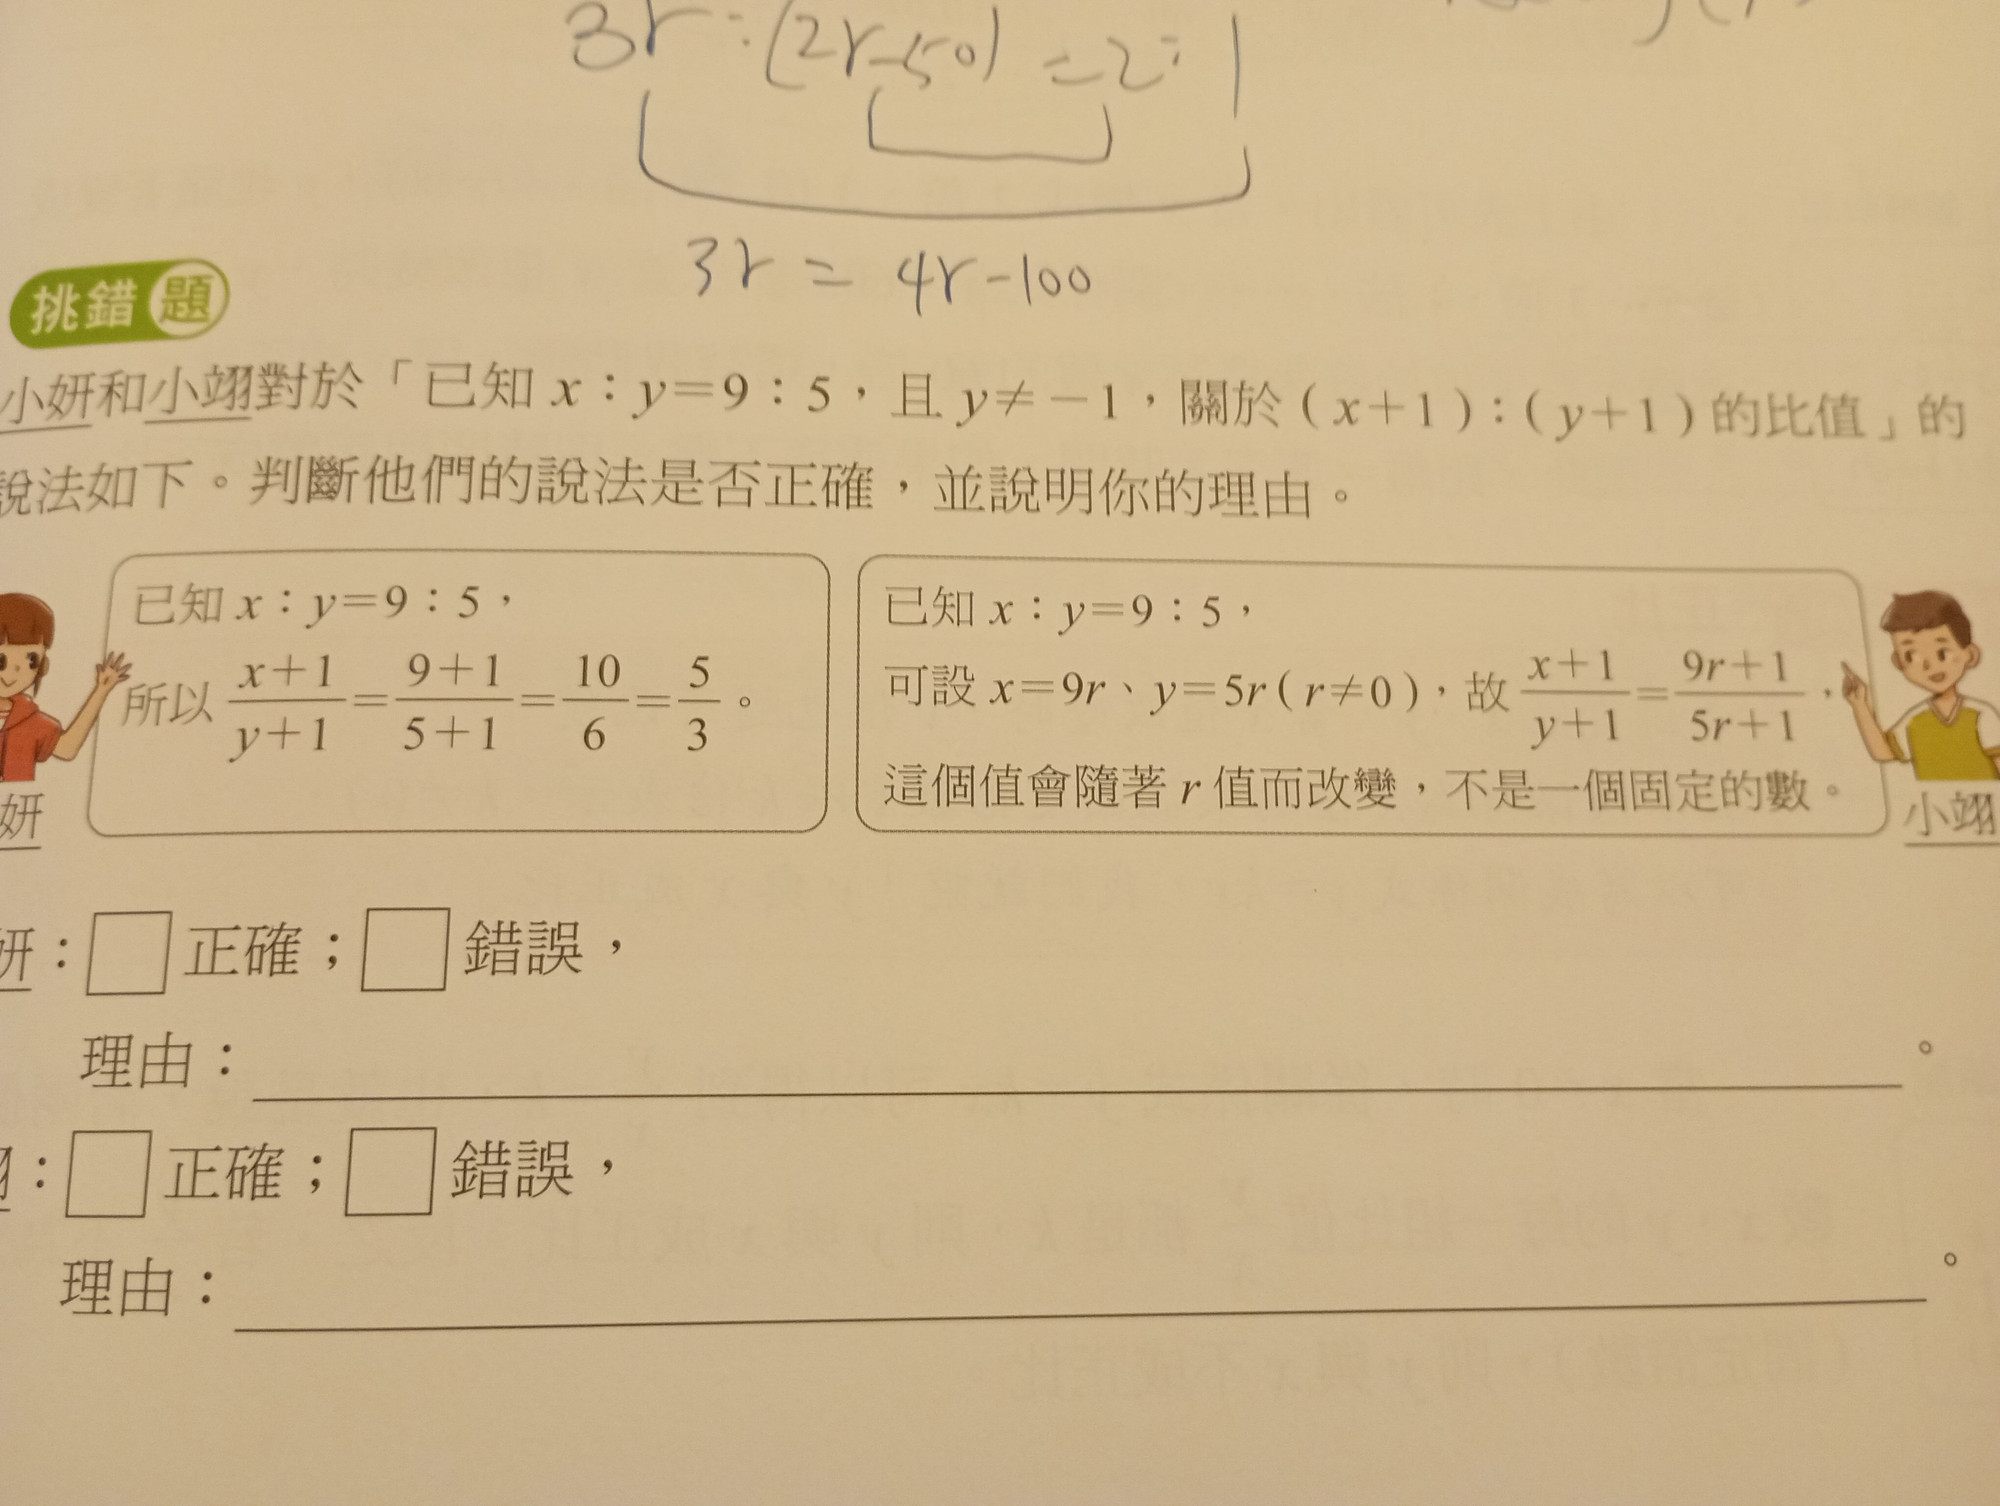 3r:(2r-50)=2:1
3r=4r-100
挑錯題
小妍和小翊對於「已知 x:y=9:5,且 y≠-1,關於(x+1):(y+1)的比值」的
說法如下。判斷他們的說法是否正確,並說明你的理由。
已知 x:y=9:5,
所以 (x+1)/(y+1)=(9+1)/(5+1)=10/6=5/3。
妍
已知 x:y=9:5,
可設 x=9r、y=5r(r≠0),故 (x+1)/(y+1)=(9r+1)/(5r+1),
這個值會隨著 r 值而改變,不是一個固定的數。
小翊
妍:□正確;□錯誤,
理由: 。
翊:□正確;□錯誤,
理由: 。